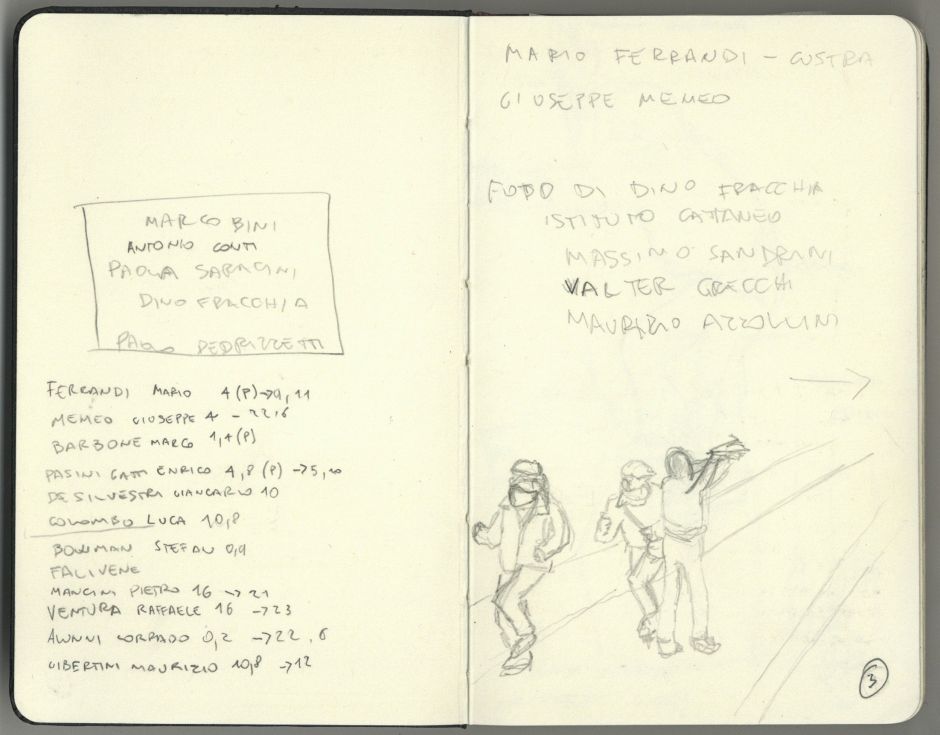 MARCO BINI
ANTONIO CONTI
PAOLA SARACINI
DINO FRACCHIA
PAOLO PEDRIZZETTI
FERRANDI MARIO 4 (P)→9, 11
MEMEO GIUSEPPE 4 - 22,6
BARBONE MARCO 1,4(P)
PASINI GATTI ENRICO 4,8 (P) →5,10
DE SILVESTRI GIANCARLO 10
COLOMBO LUCA 10,8
STEFAN 0,9
FALIVENE
MANCINI PIETRO 16 → 21
VENTURA RAFFAELE 16 →23
ALUNNI CORRADO 0,2 →22,6
GIBERTINI MAURIZIO 10,8 →12
MARIO FERRANDI - CUSTRA
GIUSEPPE MEMEO
FOTO DI DINO FRACCHIA
ISTITUTO CATTANEO
MASSIMO SANDRINI
VALTER GRECCHI
MAURIZIO AZZOLLINI
→
3